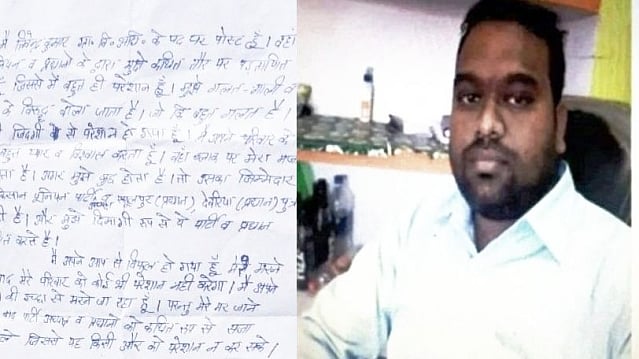 मै त्रिवेन्द्र कुमार ग्रा० वि० अधि० के पद पर पोस्ट हूँ। वहाँ
व प्रधानो के द्वारा मुझे कथित तौर पर
जिससे मैं बहुत ही परेशान हूँ। मुझे गलत-गाली व
के विरूद्ध बोला जाता है। जो कि बहुत गलत है।
जिंदगी से परेशान हो गया हूँ। मै अपने परिवार से
बहुत प्यार व विश्वास करता हूँ। वहाँ ब्लाक पर मेरा
है। अगर मुझे कुछ होता है। तो उसका जिम्मेदार
किसान यूनियन पार्टी रसूलपुर (प्रधान), देवरिया (प्रधान) पुत्र
है। और मुझे दिमागी रूप से ये पार्टी व प्रधान
करते है।
मै अपने आप से विफल हो गया हूँ मेरे मरने
बाद मेरे परिवार को कोई भी परेशान नहीं करेगा। मै अपने
की इच्छा से मरने जा रहा हूँ। परन्तु मेरे मर जाने
बाद पार्टी अध्यक्ष व प्रधानो को कथित रूप से सजा
जिससे यह किसी और को परेशान न कर सके।